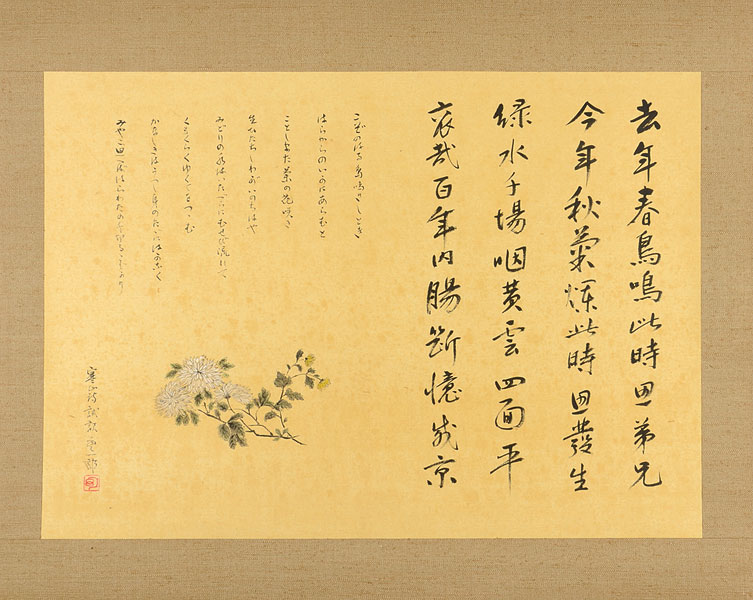 去年春鳥鳴此時思弟兄
今年秋菊爛此時思發生
緑水千場咽黄雲四面平
哀哉百年内腸斷憶咸京
こぞのはる鳥鳴きしとき
はらからのいかにあらむと
ことしまた菊の花咲き
生ひたちしわがいのちはや
みどりの水はいたづらにむせび流れて
くもくらくゆくてをつつむ
かなしきはうつし身の
みやこ思へばはらわたの
寒山詩 試訳 一郎